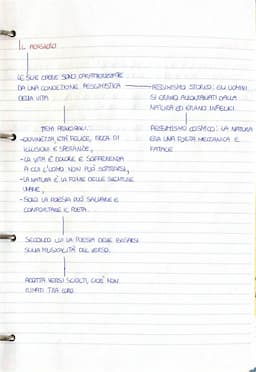 IL PENSIERO
LE SUE OPERE SONO CARATTERIZZATE
DA UNA CONCEZIONE PESSIMISTICA
DELLA VITA
PESSIMISMO STORICO: GLI UOMINI
SI ERANO ALLONTANATI DALLA
NATURA ED ERANO INFELICI
PESSIMISMO COSMICO: LA NATURA
ERA UNA FORZA MECCANICA E
FATALE
TEMI PRINCIPALI:
-GIOVINEZZA ETÀ FELICE, RICCA DI
ILLUSIONI E SPERANZE,
-LA VITA È DOLORE E SOFFERENZA
A CUI L'UOMO NON PUÒ SOTTRARSI,
-LA NATURA È LA FONTE DELLE SVENTURE
UMANE,
-SOLO LA POESIA PUÒ SALVARE E
CONFORTARE IL POETA.
SECONDO LUI LA POESIA DEVE BASARSI
SULLA MUSICALITÀ DEL VERSO.
ADOTTA VERSI SCIOLTI, CIOÈ NON
RIMATI TRA LORO